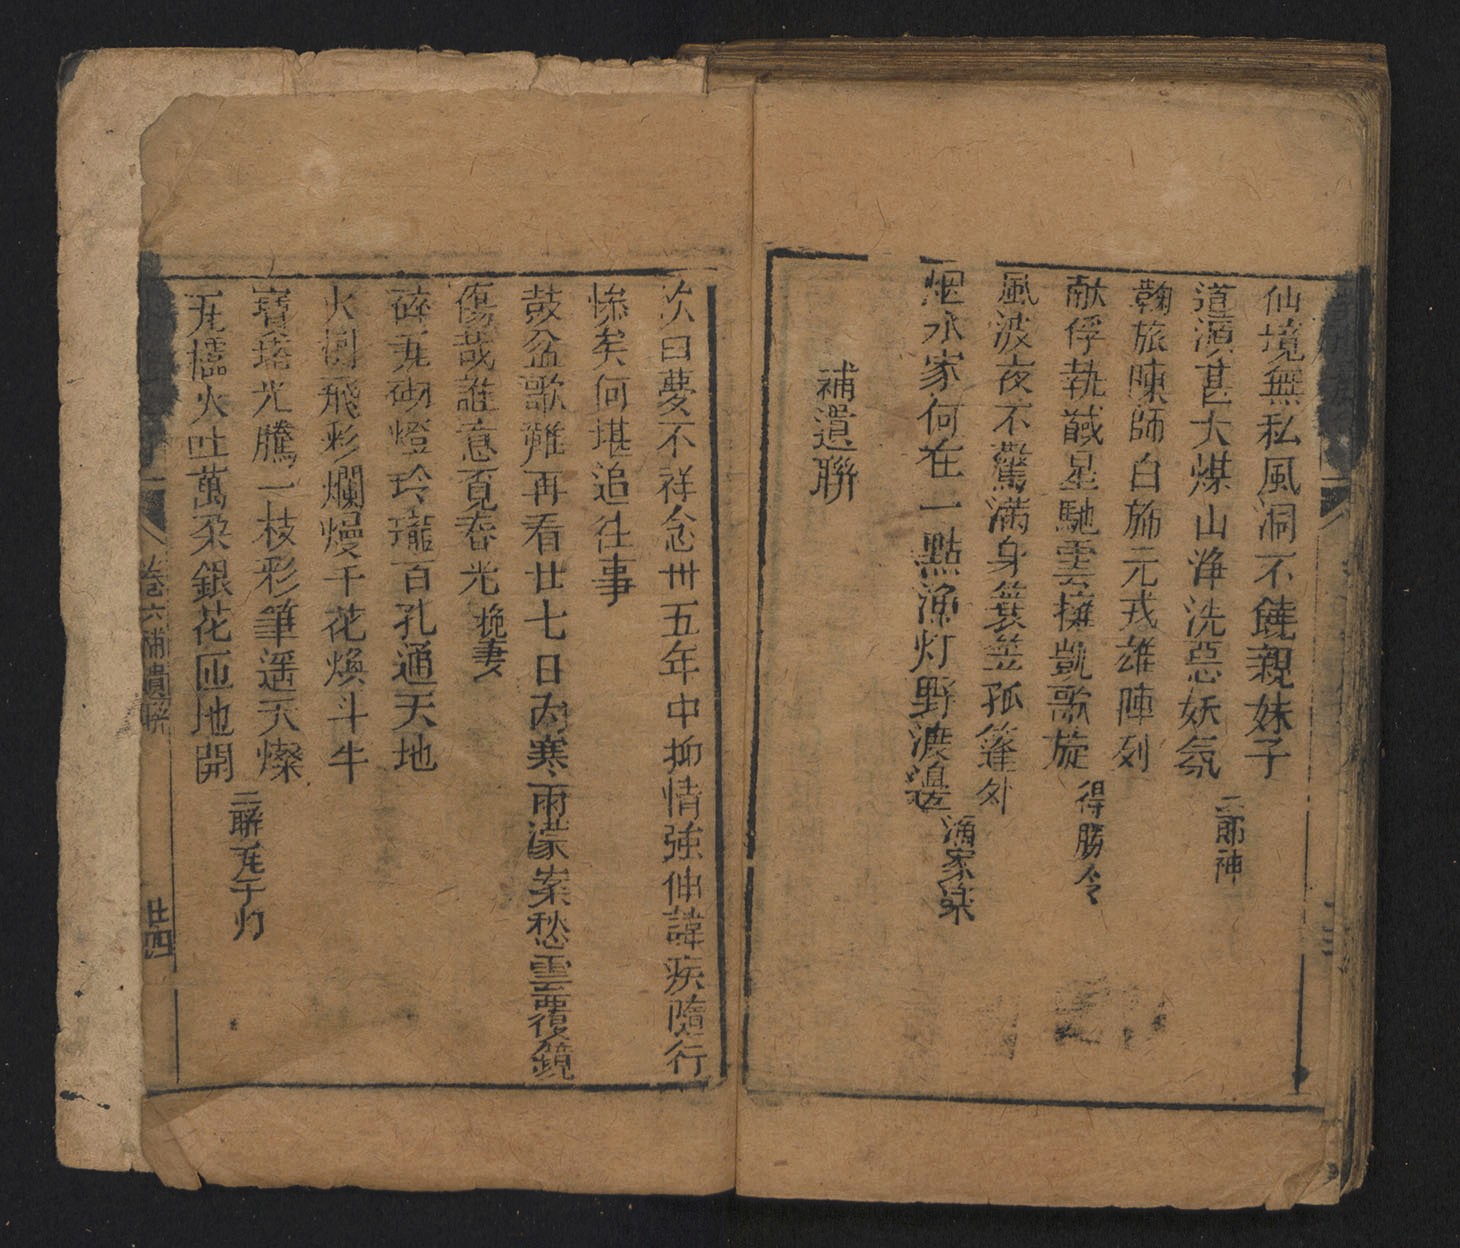 仙境無私風洞不饒親妹子
道源甚大煤山海洗惡妖氛
二郎神
鞠旅陳師白斾元戎雄陣列
献俘執馘星馳雲擁凱歌旋
得勝令
風波夜不驚满身簑笠孤篷外
烟水家何在一點漁灯野渡邉
漁家樂
補遺聯
次曰夢不祥念卅五年中抑情強仲諱疾隨行
惨矣何堪追往事
鼓盆歌難再看廿七日内寒雨濛案愁雲覆鏡
傷哉誰意覔春光
挽妻
碎瓦砌燈玲瓏百孔通天地
火樹飛彩爛熳千花煥斗牛
寶塔光騰一枝彩筆遥天燦
瓦橋火吐萬朶銀花匝地開
三聯瓦子灯
卷六補遺聯
廿四